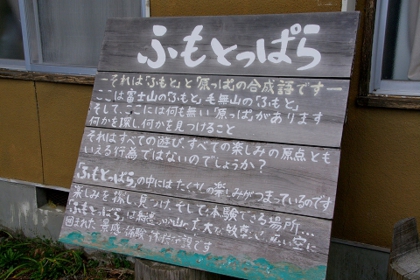 ふもとっぱら
ーそれは「ふもと」と「原っぱ」の合成語ですー
ここは富士山の「ふもと」、毛無山の「ふもと」
そして、ここには何も無い「原っぱ」があります
何かを探し、何かを見つけること
それはすべての遊び、すべての楽しみの原点とも
いえる行為ではないのでしょうか?
「ふもとっぱら」の中にはたくさんの楽しみがつまっているのです
楽しみを探し、見つけ、そして、体験できる場所…
「ふもとっぱら」は
囲まれた
です